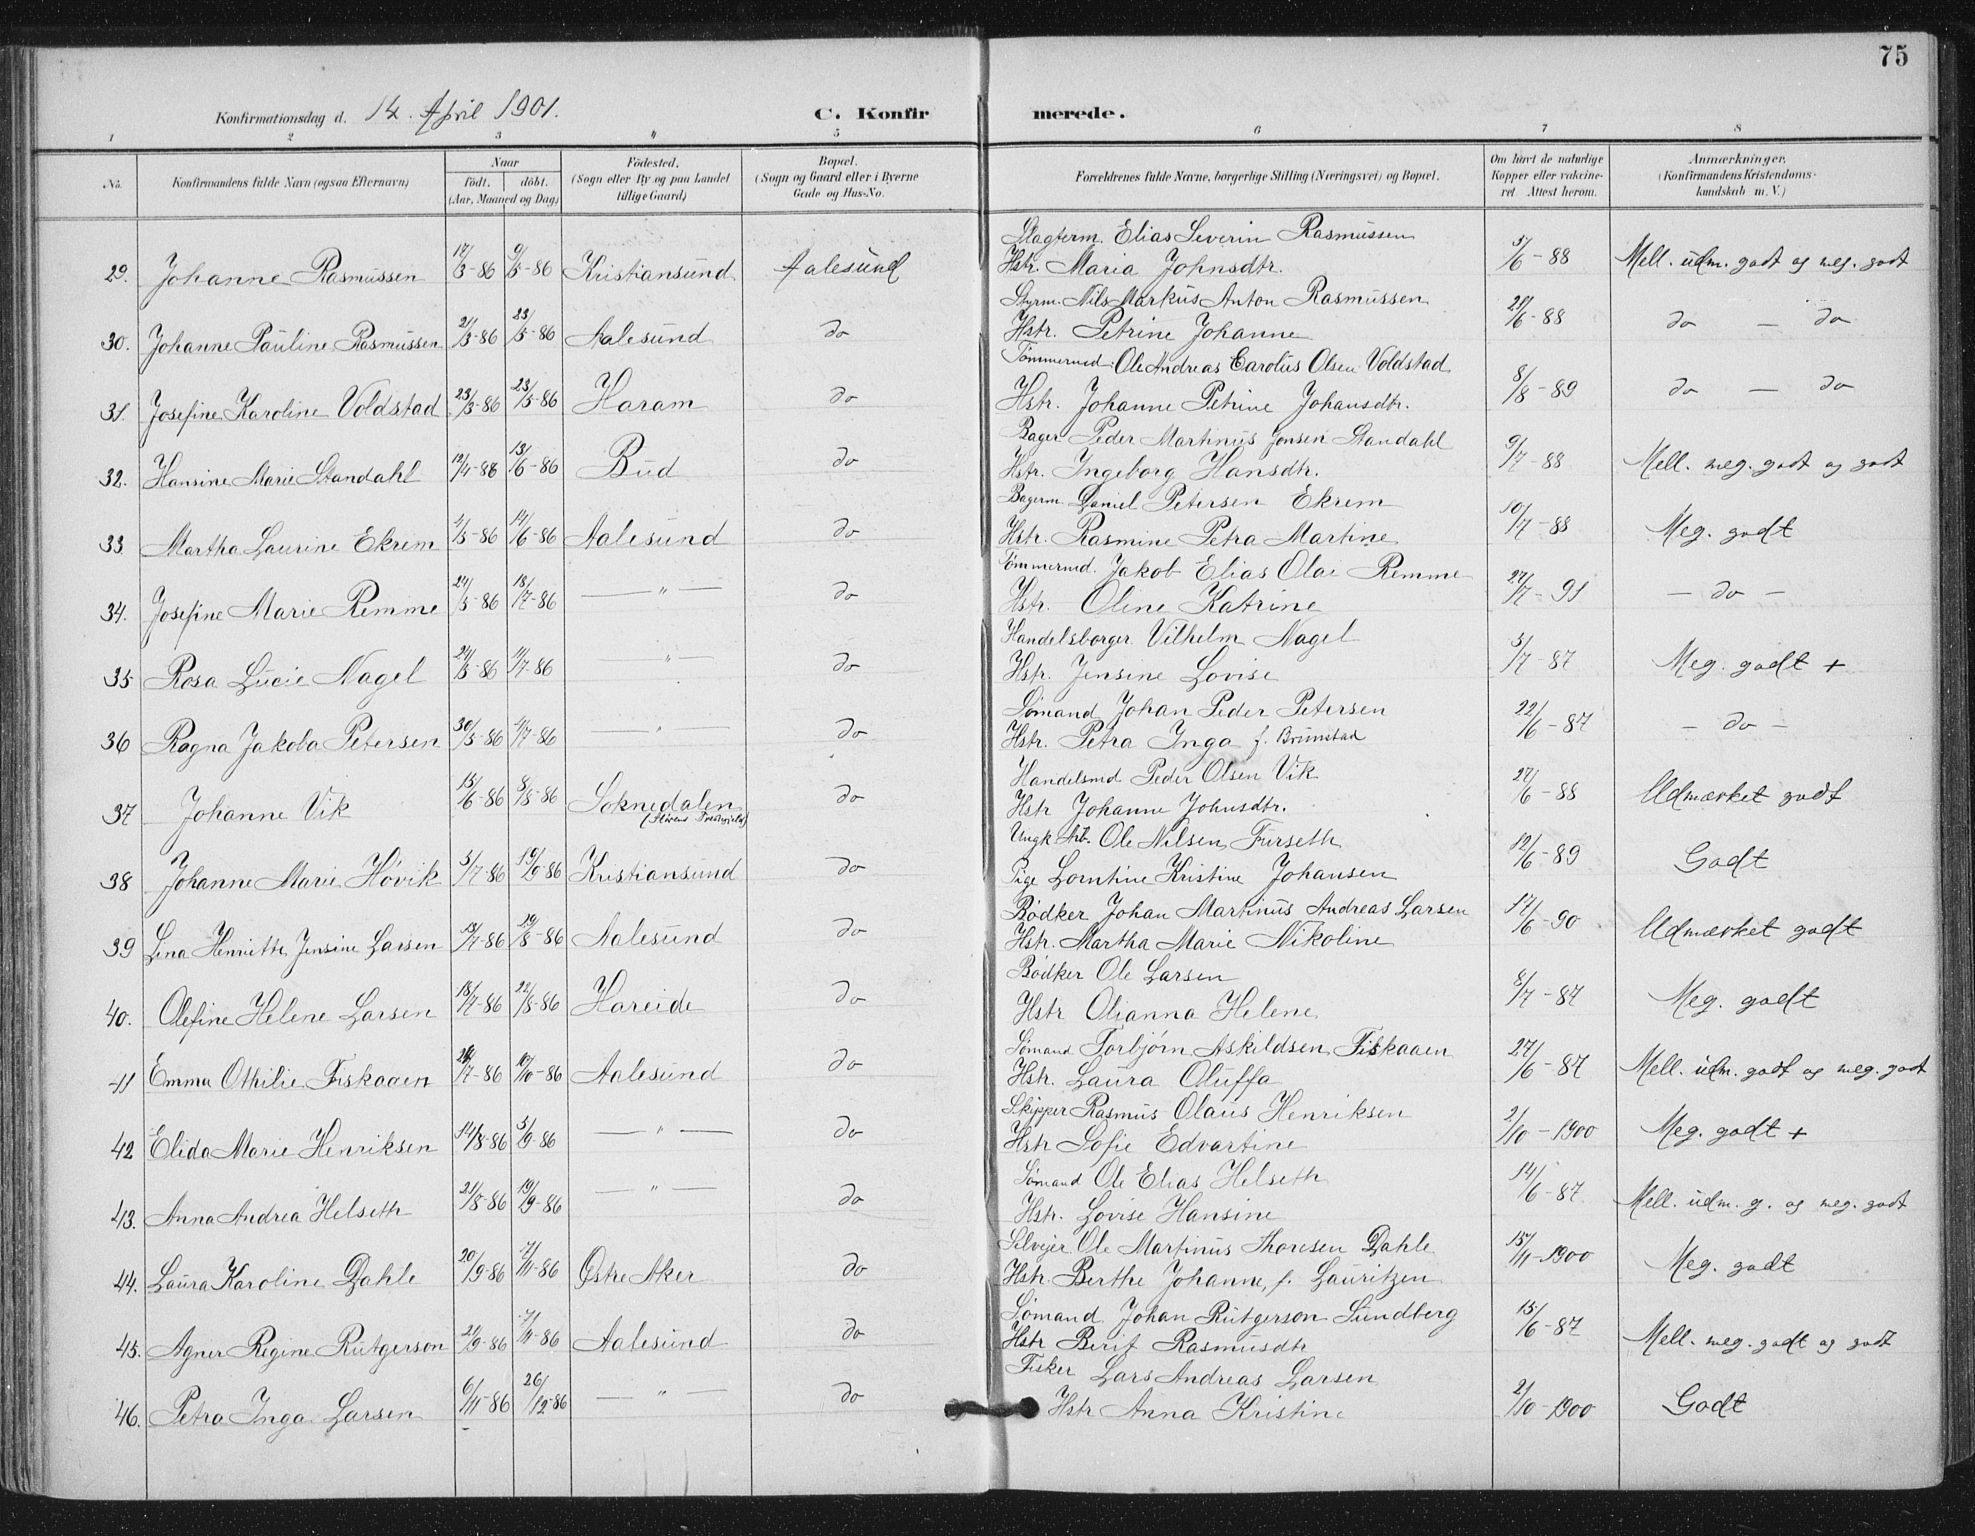 75
Konfirmationsdag d. 14. April 1901.
C. Konfirmerede.
1 2 3 " 5 6 7 8
No.
Konfirmandens fulde Navn (ogsaa Efternavn)
Naar
födt. döbt.
(Aar, Maaned og Dag)
Födested.
(Sogn eller By og paa Landet
tillige Gaard)
Bopæl.
(Sogn og Gaard eller i Byerne
Gade og Hus-No.
Forældrenes fulde Navne, borgerlige Stilling (Næringsvei) og Bopæl.
Om havt de naturlige
Kopper eller vakcine-
ret. Attest herom.
Anmærkninger.
(Konfirmandens Kristendoms-
kundskab m. V.)
Slagterm. Elias Severin Rasmussen
29. Johanne Rasmussen 17/3-86 9/5-86 Kristiansund Aalesund Hstr. Maria Johnsdtr. 5/6-88 Mell. udm. godt og meg. godt
Styrm. Nils Markus Anton Rasmussen
30. Johanne Pauline Rasmussen 21/3-86 23/5-86 Aalesund do Hstr. Petrine Johanne 21/6-88 do — do
Tömmermd. Ole Andreas Carolus Olsen Voldstad
31. Josefine Karoline Voldstad 23/3-86 23/5-86 Haram do Hstr. Johanne Petrine Johansdtr. 8/8-89 do — do
Bager Peder Martinus Jonsen Standahl
32. Hansine Marie Standahl 12/4-86 13/6-86 Bud do Hstr. Ingeborg Hansdtr. 9/7-88 Mell. meg. godt og godt
Bagerm. Daniel Petersen Ekrem
33. Martha Laurine Ekrem 4/5-86 14/6-86 Aalesund do Hstr. Rasmine Petra Martine 10/7-88 Meg. godt
Tömmermd. Jakob Elias Olai Remme
34. Josefine Marie Remme 24/5-86 18/7-86 — " — do Hstr. Oline Katrine 27/7-91 — do —
Handelsborger Vilhelm Nagel
35 Rosa Lucie Nagel 24/5-86 11/7-86 — " — do Hstr. Jensine Lovise 5/7-87 Meg. godt +
Sømand Johan Peder Petersen
36 Ragna Jakoba Petersen 30/5-86 4/7-86 — " — do Hstr. Petra Inga f. Brunstad 22/6-87 — do —
Handelsmd Peder Olsen Vik
37 Johanne Vik 15/6-86 8/8-86 Soknedalen do Hstr Johanne Johnsdtr. 27/6-88 Udmærket godt
(Störens Præstegjeld)
Ungk. Arb. Ole Nilsen Furseth
38 Johanne Marie Høvik 5/7-86 19/9-86 Kristiansund do Pige Lorntine Kristine Johansen 12/6-89 Godt
Bödker Johan Martinus Andreas Larsen
39 Lina Henriette Jensine Larsen 13/7-86 29/8-86 Aalesund do Hstr. Martha Marie Nikoline 14/6-90 Udmærket godt
Bödker Ole Larsen
40. Olefine Helene Larsen 18/7-86 22/8-86 Hareide do Hstr Olianna Helene 8/7-87 Meg. godt
Sømand Torbjörn Askildsen Fiskaaen
41 Emma Othilie Fiskaaen 7-86 10/10-86 Aalesund do Hstr. Laura Oluffa 27/6-87 Mell. udm. godt og meg. godt
Skipper Rasmus Olaus Henriksen
42 Elida Marie Henriksen 14/8-86 5/9-86 — " — do Hstr Sofie Edvartine 2/10-1900 Meg. godt +
Sømand Ole Elias Helseth
43. Anna Andrea Helseth 21/8-86 19/9-86 — " — do Hstr. Lovise Hansine 14/6-87 Mell. udm. g. og meg. godt
Ole Martinus Thoresen Dahle
44. Laura Karoline Dahle 20/9-86 7/11-86 Østre Aker do Hstr. Berthe Johanne, f. Lauritzen 15/11-1900 Meg. godt
Sømand Johan Rutgerson Sundberg
45. Agner Regine Rutgerson 21/9-86 7/11-86 Aalesund do Hstr Berit Rasmusdtr 15/6-87 Mell. meg. godt og godt
Fisker Lars Andreas Larsen
46. Petra Inga Larsen 6/11-86 26/12-86 — " — do Hstr Anna Kristine 2/10-1900 Godt